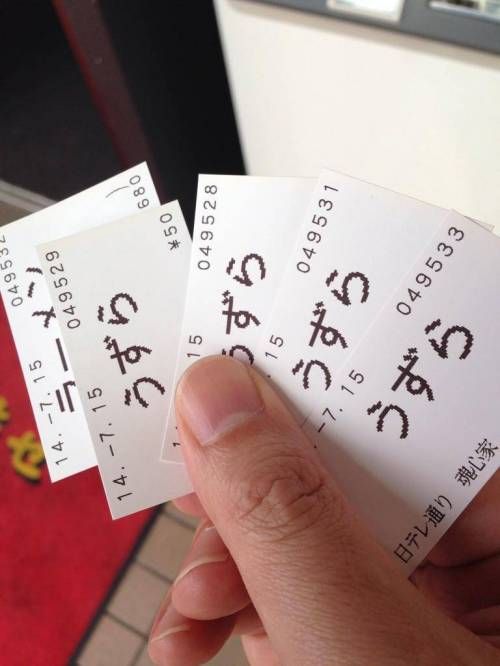 049532
680
ラーメン
14.-7.15
049529
¥50
うずら
14.-7.15
049528
うずら
15
049531
うずら
7.15
049533
うずら
日テレ通り 魂心家